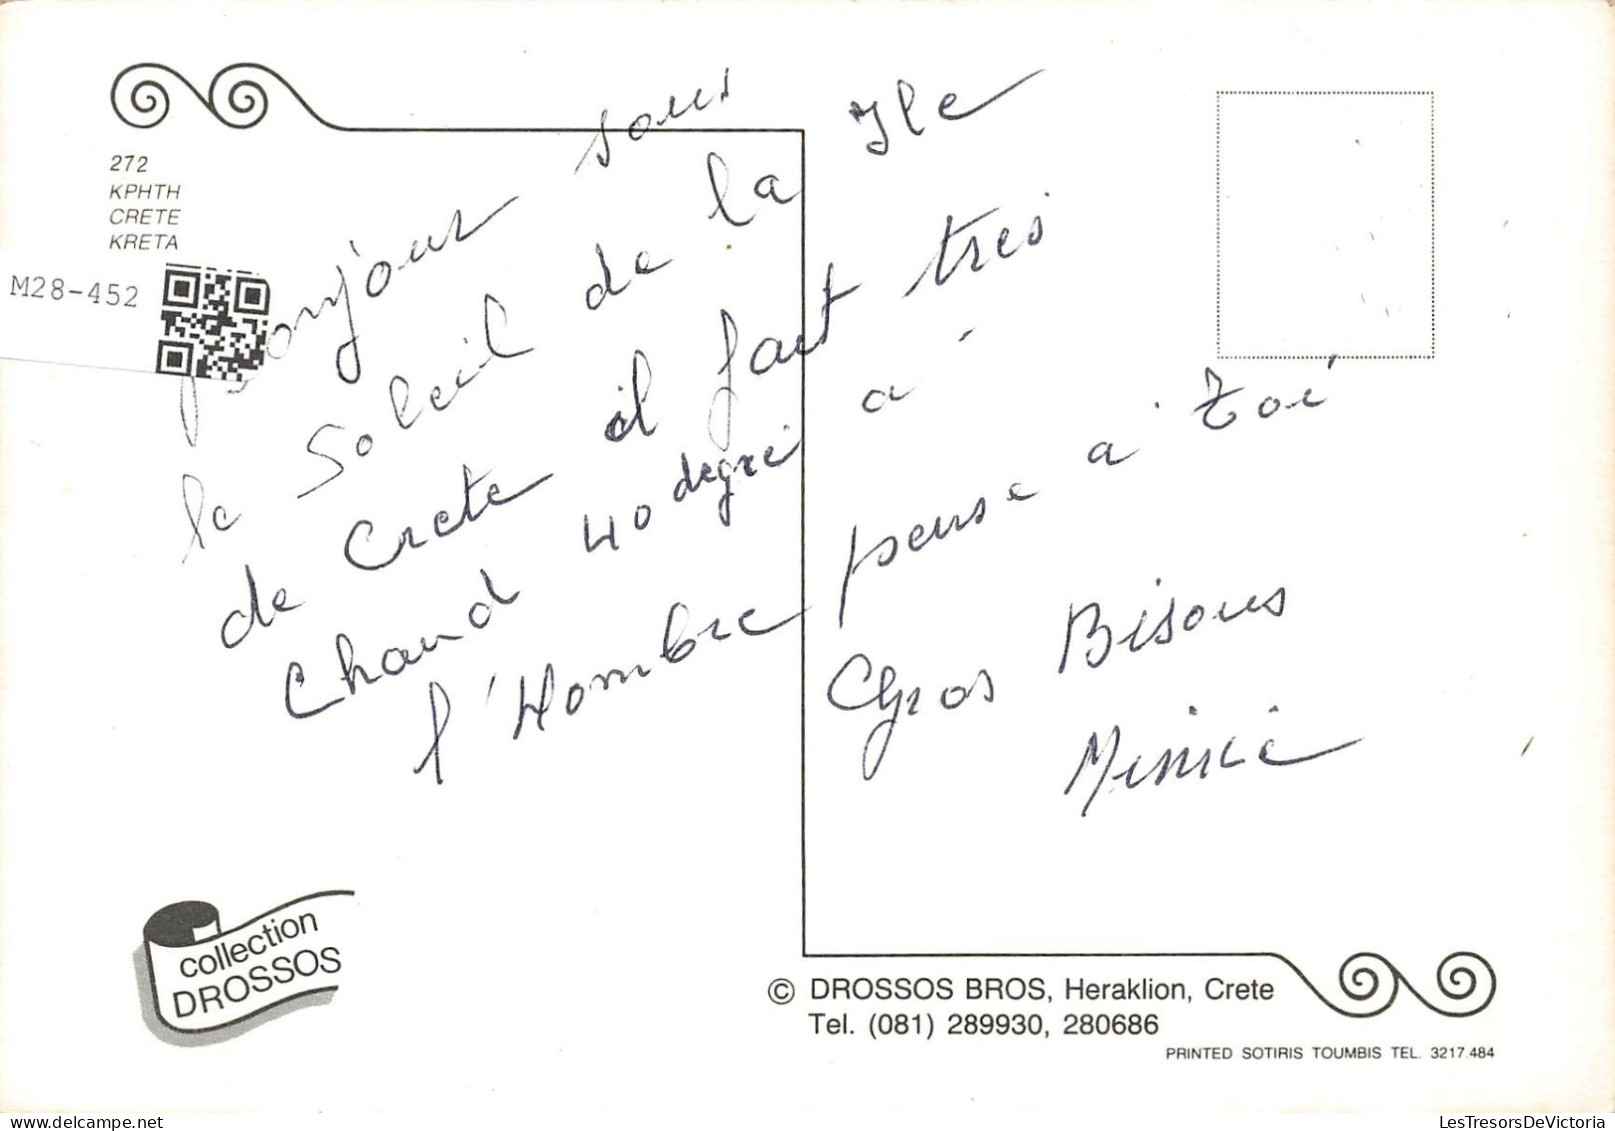 272
KPHTH
CRETE
KRETA
M28-452
Bonjour sous
le Soleil de la Ile
de Crete il fait tres
Chaud 40 degré a
l'Hombre pense a toi
Gros Bisous
Mimie
collection
DROSSOS
© DROSSOS BROS, Heraklion, Crete
Tel. (081) 289930, 280686
PRINTED SOTIRIS TOUMBIS TEL. 3217.484
LesTresorsDeVictoria